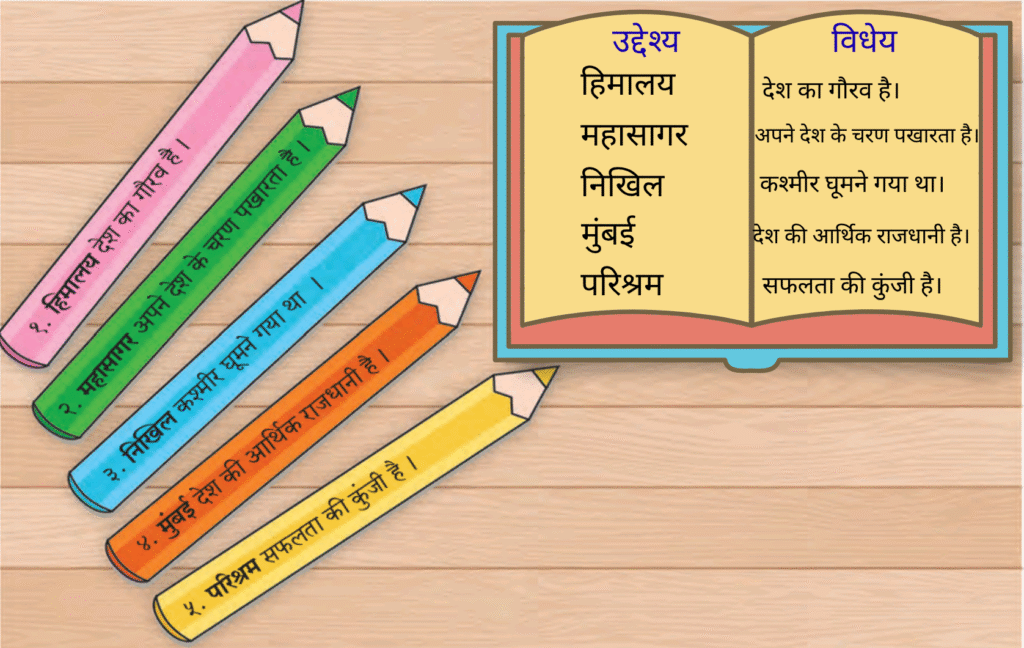 १. हिमालय देश का गौरव है ।
२. महासागर अपने देश के चरण पखारता है ।
३. निखिल कश्मीर घूमने गया था ।
४. मुंबई देश की आर्थिक राजधानी है ।
५. परिश्रम सफलता की कुंजी है ।
उद्देश्य विधेय
हिमालय देश का गौरव है।
महासागर अपने देश के चरण पखारता है।
निखिल कश्मीर घूमने गया था।
मुंबई देश की आर्थिक राजधानी है।
परिश्रम सफलता की कुंजी है।